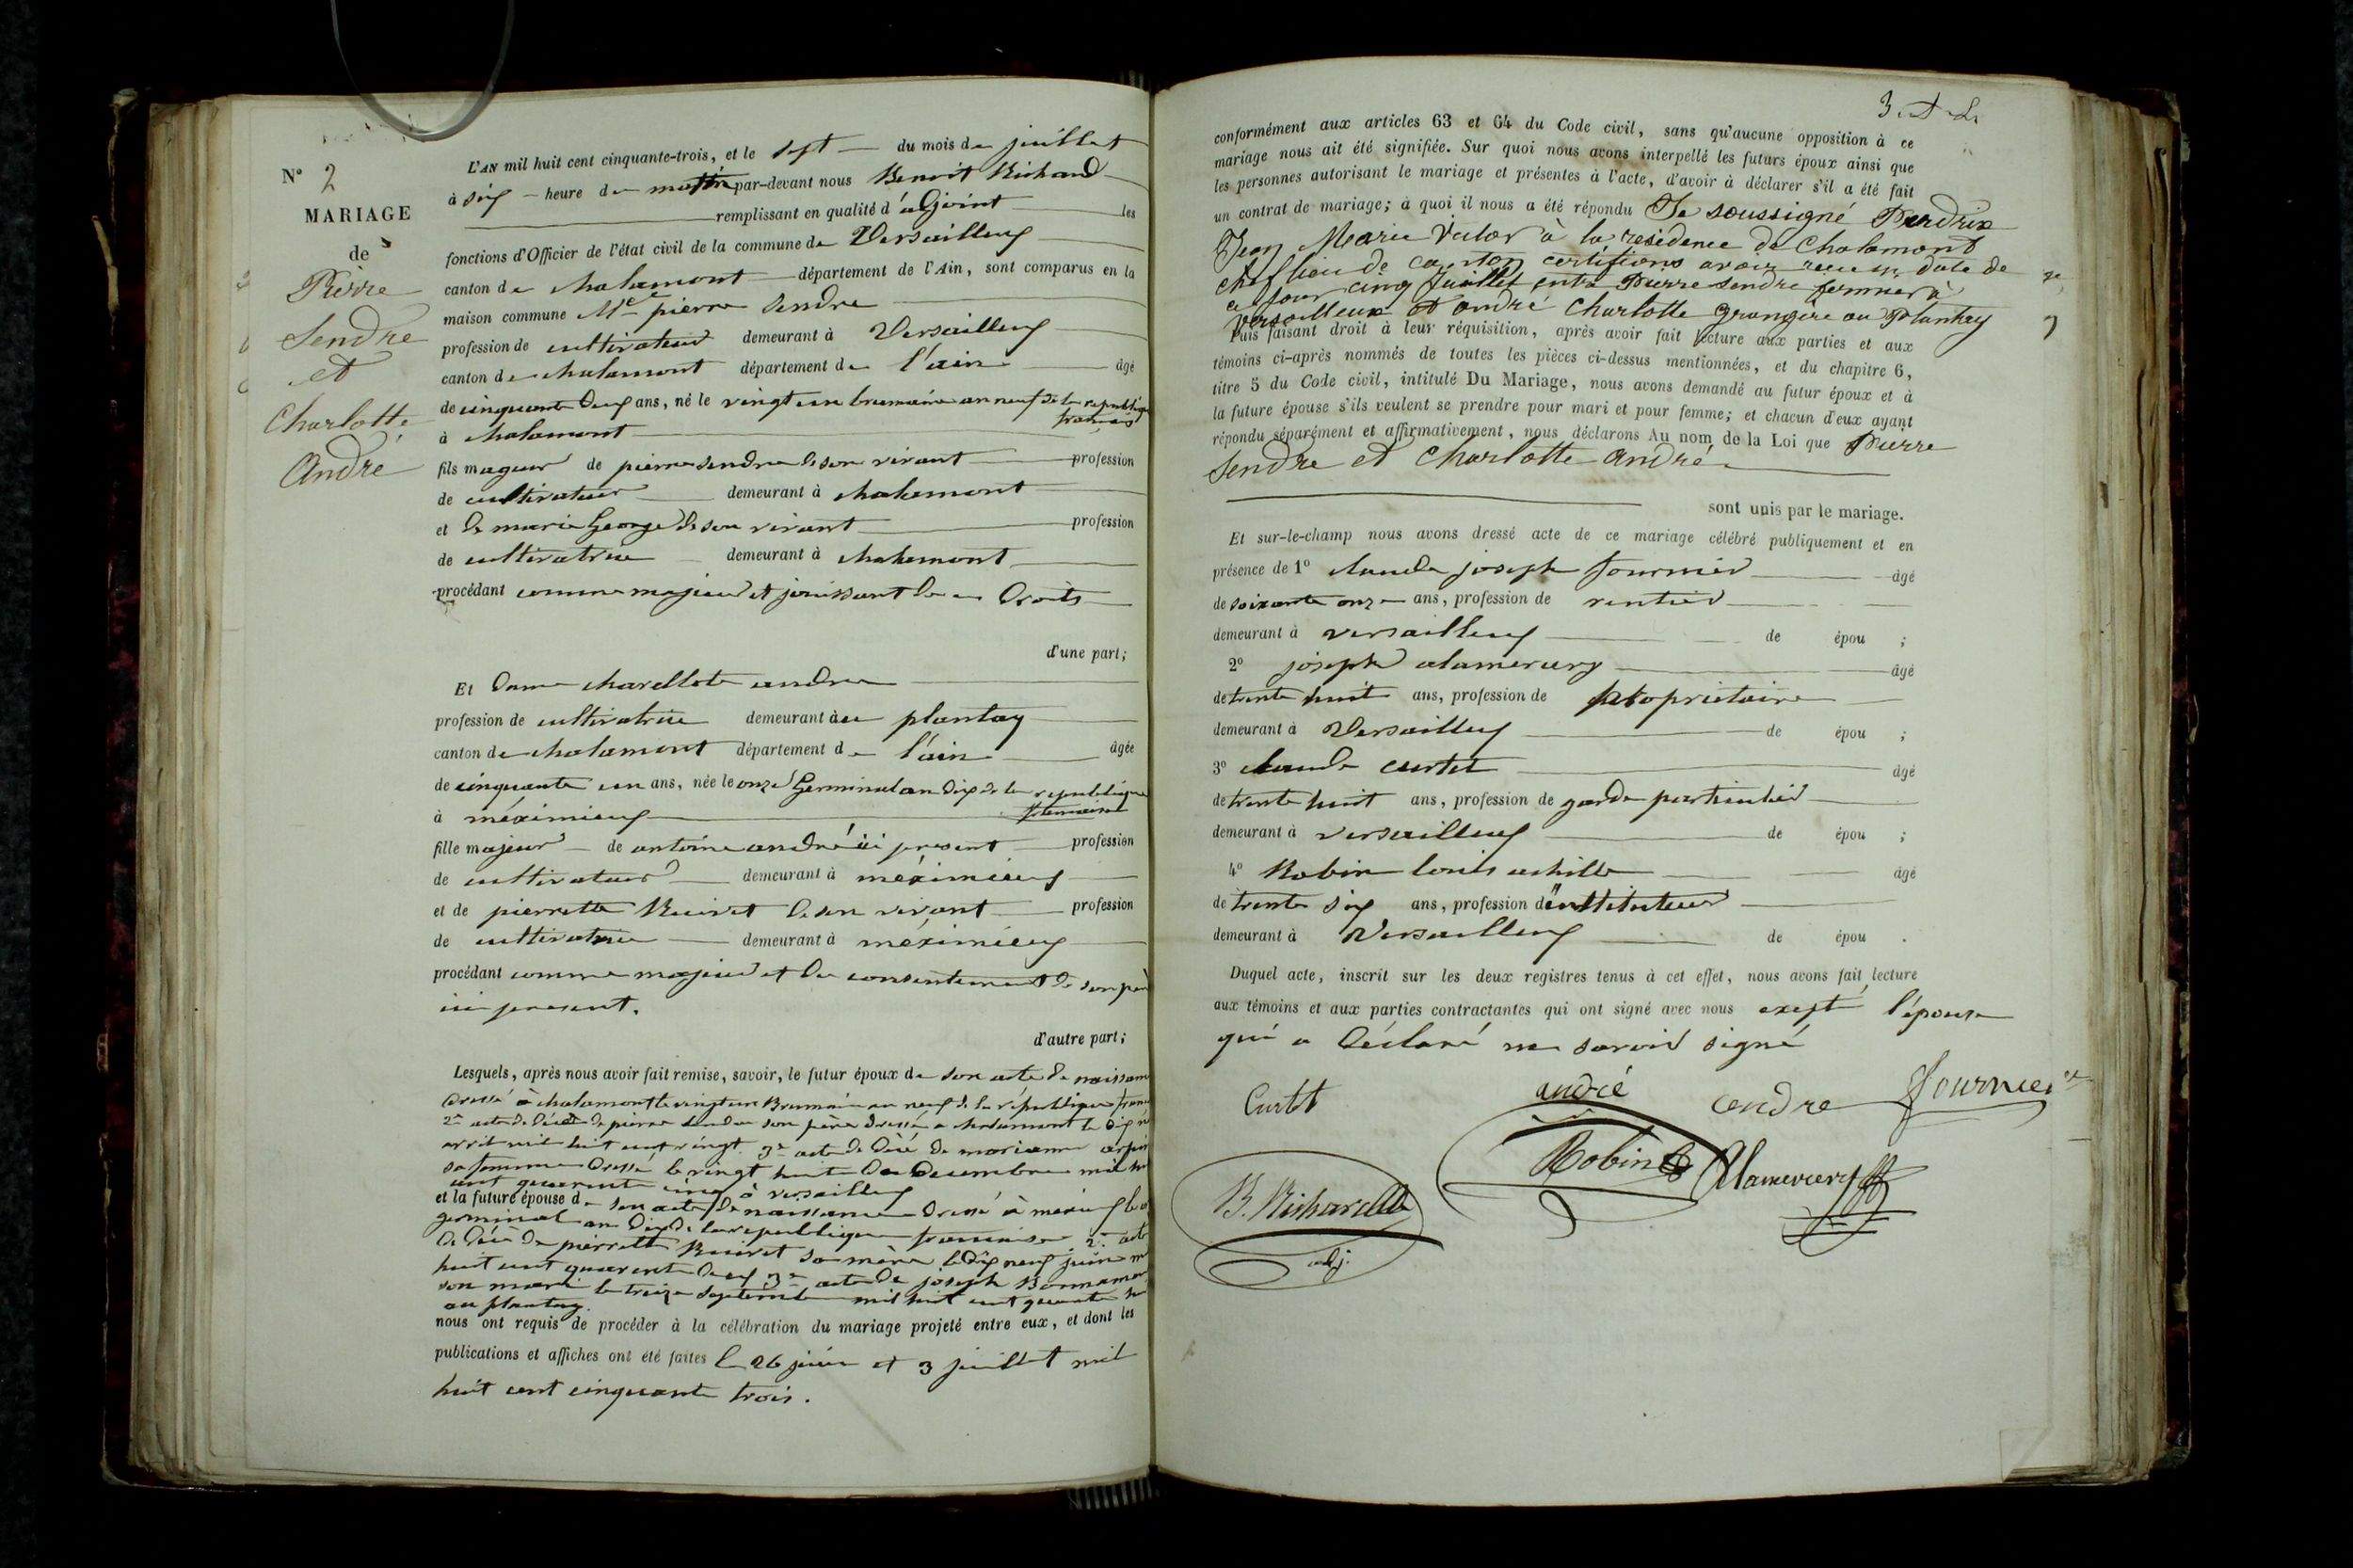 N° 2
MARIAGE
de
Pierre
Sendre
et
Charlotte
André
L'AN mil huit cent cinquante-trois, et le sept du mois de juillet
à six heure de matin par-devant nous Benoit Richard
remplissant en qualité d'adjoint les
fonctions d'Officier de l'état civil de la commune de Versailleux
canton de chalamont département de l'Ain, sont comparus en la
maison commune pierre Sendre
profession de cultivateur demeurant à Versailleux
canton de chalamont département de l'ain âgé
de cinquante deux ans, né le vingt un brumaire an neuf de la republique
français
à chalamont
fils mageur de pierre sendre de son vivant profession
de cultivateur demeurant à chalamont
et de marie George de son vivant profession
de cultivatrice demeurant à chalamont
procédant comme majeur et jouissant de droits
d'une part;
Et Dame charellote andre
profession de cultivatrice demeurant à au plantay
canton de chalamont département de l'ain âgée
de cinquante un ans, née le onze Germinal an dix de la republique
à méximieux
fille majeur de antoine andré ici present profession
de cultivateur demeurant à meximieux
et de pierrette Buivet de son vivant profession
de cultivatrice demeurant à méximieux
procédant comme majeur et du consentement de son père
ici present.
d'autre part;
Lesquels, après nous avoir fait remise, savoir, le futur époux de son acte de naissance
dressé à chalamont le vingt un Brumaire an neuf de la république
2e acte de décé de pierre sendre son père dressé a chalamont le dix
avril mil huit cent vingt 3e acte de décé de marianne
sa femme dressé le vingt huit de Decembre mil
cent quarente cinq à versailleux
et la future épouse de son acte de naissance dressé à
germinal an dix de la republique francaise 2e acte
de décé de pierrette Buivet sa mère le dix neuf juin
huit cent quarente deux 3e acte de joseph
son mari le treize septembre mil huit cent quarente
au plantay.
nous ont requis de procéder à la célébration du mariage projeté entre eux, et dont les
publications et affiches ont été faites le 26 juin et 3 juillet mil
huit cent cinquante trois.
3.
conformément aux articles 63 et 64 du Code civil, sans qu'aucune opposition à ce
mariage nous ait été signifiée. Sur quoi nous avons interpellé les futurs époux ainsi que
les personnes autorisant le mariage et présentes à l'acte, d'avoir à déclarer s'il a été fait
un contrat de mariage; à quoi il nous a été répondu Je soussigné Perdrix
Jean Marie à la residence de Chalamont
chef lieu de canton certifions avoir recu en date de
ce jour cinq Juillet entre Pierre Sendre fermier à
versailleux et andré Charlotte grangère au Plantay
Puis faisant droit à leur réquisition, après avoir fait lecture aux parties et aux
témoins ci-après nommés de toutes les pièces ci-dessus mentionnées, et du chapitre 6,
titre 5 du Code civil, intitulé Du Mariage, nous avons demandé au futur époux et à
la future épouse s'ils veulent se prendre pour mari et pour femme; et chacun d'eux ayant
répondu séparément et affirmativement, nous déclarons Au nom de la Loi que Pierre
Sendre et Charlotte andré
sont unis par le mariage.
Et sur-le-champ nous avons dressé acte de ce mariage célébré publiquement et en
présence de 1° claude joseph fournier âgé
de soixante onze ans, profession de rentier
demeurant à versailleux de épou ;
2° joseph alamercery âgé
de trente huit ans, profession de propriétaire
demeurant à Versailleux de épou ;
3° claude curtet âgé
de trente huit ans, profession de garde particulier
demeurant à versailleux de épou ;
4° Robin louis achille âgé
de trente six ans, profession d'instituteur
demeurant à Versailleux de épou .
Duquel acte, inscrit sur les deux registres tenus à cet effet, nous avons fait lecture
aux témoins et aux parties contractantes qui ont signé avec nous exepté l'épouse
qui a déclaré ne savoir signé
Curtet
andré
cendre
fournier
Robin
Alamercery
B. Richard
adj.